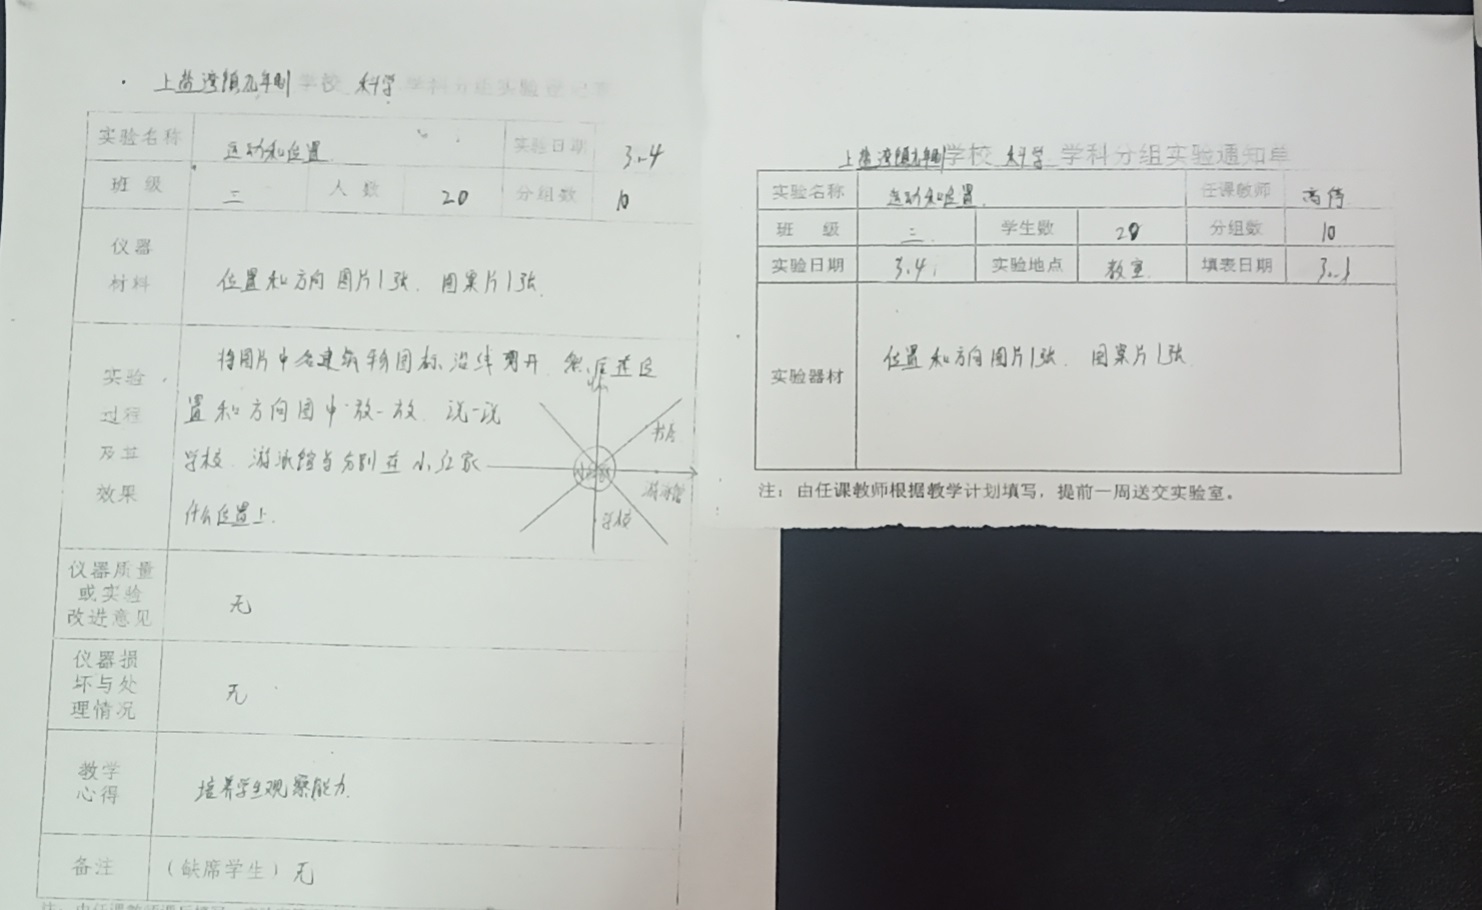 上盐湾镇九年制学校 科学 学科分组实验登记表
实验名称 运动和位置 实验日期 3.4
班级 三 人数 20 分组数 10
仪器材料 位置和方向图片1张、图案片1张
实验过程及其效果
将图片中各建筑物图标沿线剪开
置和方向图中放一放 说一说
学校 游泳馆 分别在小红家
什么位置上.
书店
游泳馆
学校
仪器质量或实验改进意见 无
仪器损坏与处理情况 无
教学心得 培养学生观察能力.
备注 (缺席学生) 无
上盐湾镇九年制学校 科学 学科分组实验通知单
实验名称 运动和位置. 任课教师 高
班级 三 学生数 20 分组数 10
实验日期 3.4 实验地点 教室 填表日期
实验器材 位置和方向图片1张、图案片1张
注：由任课教师根据教学计划填写，提前一周送交实验室。